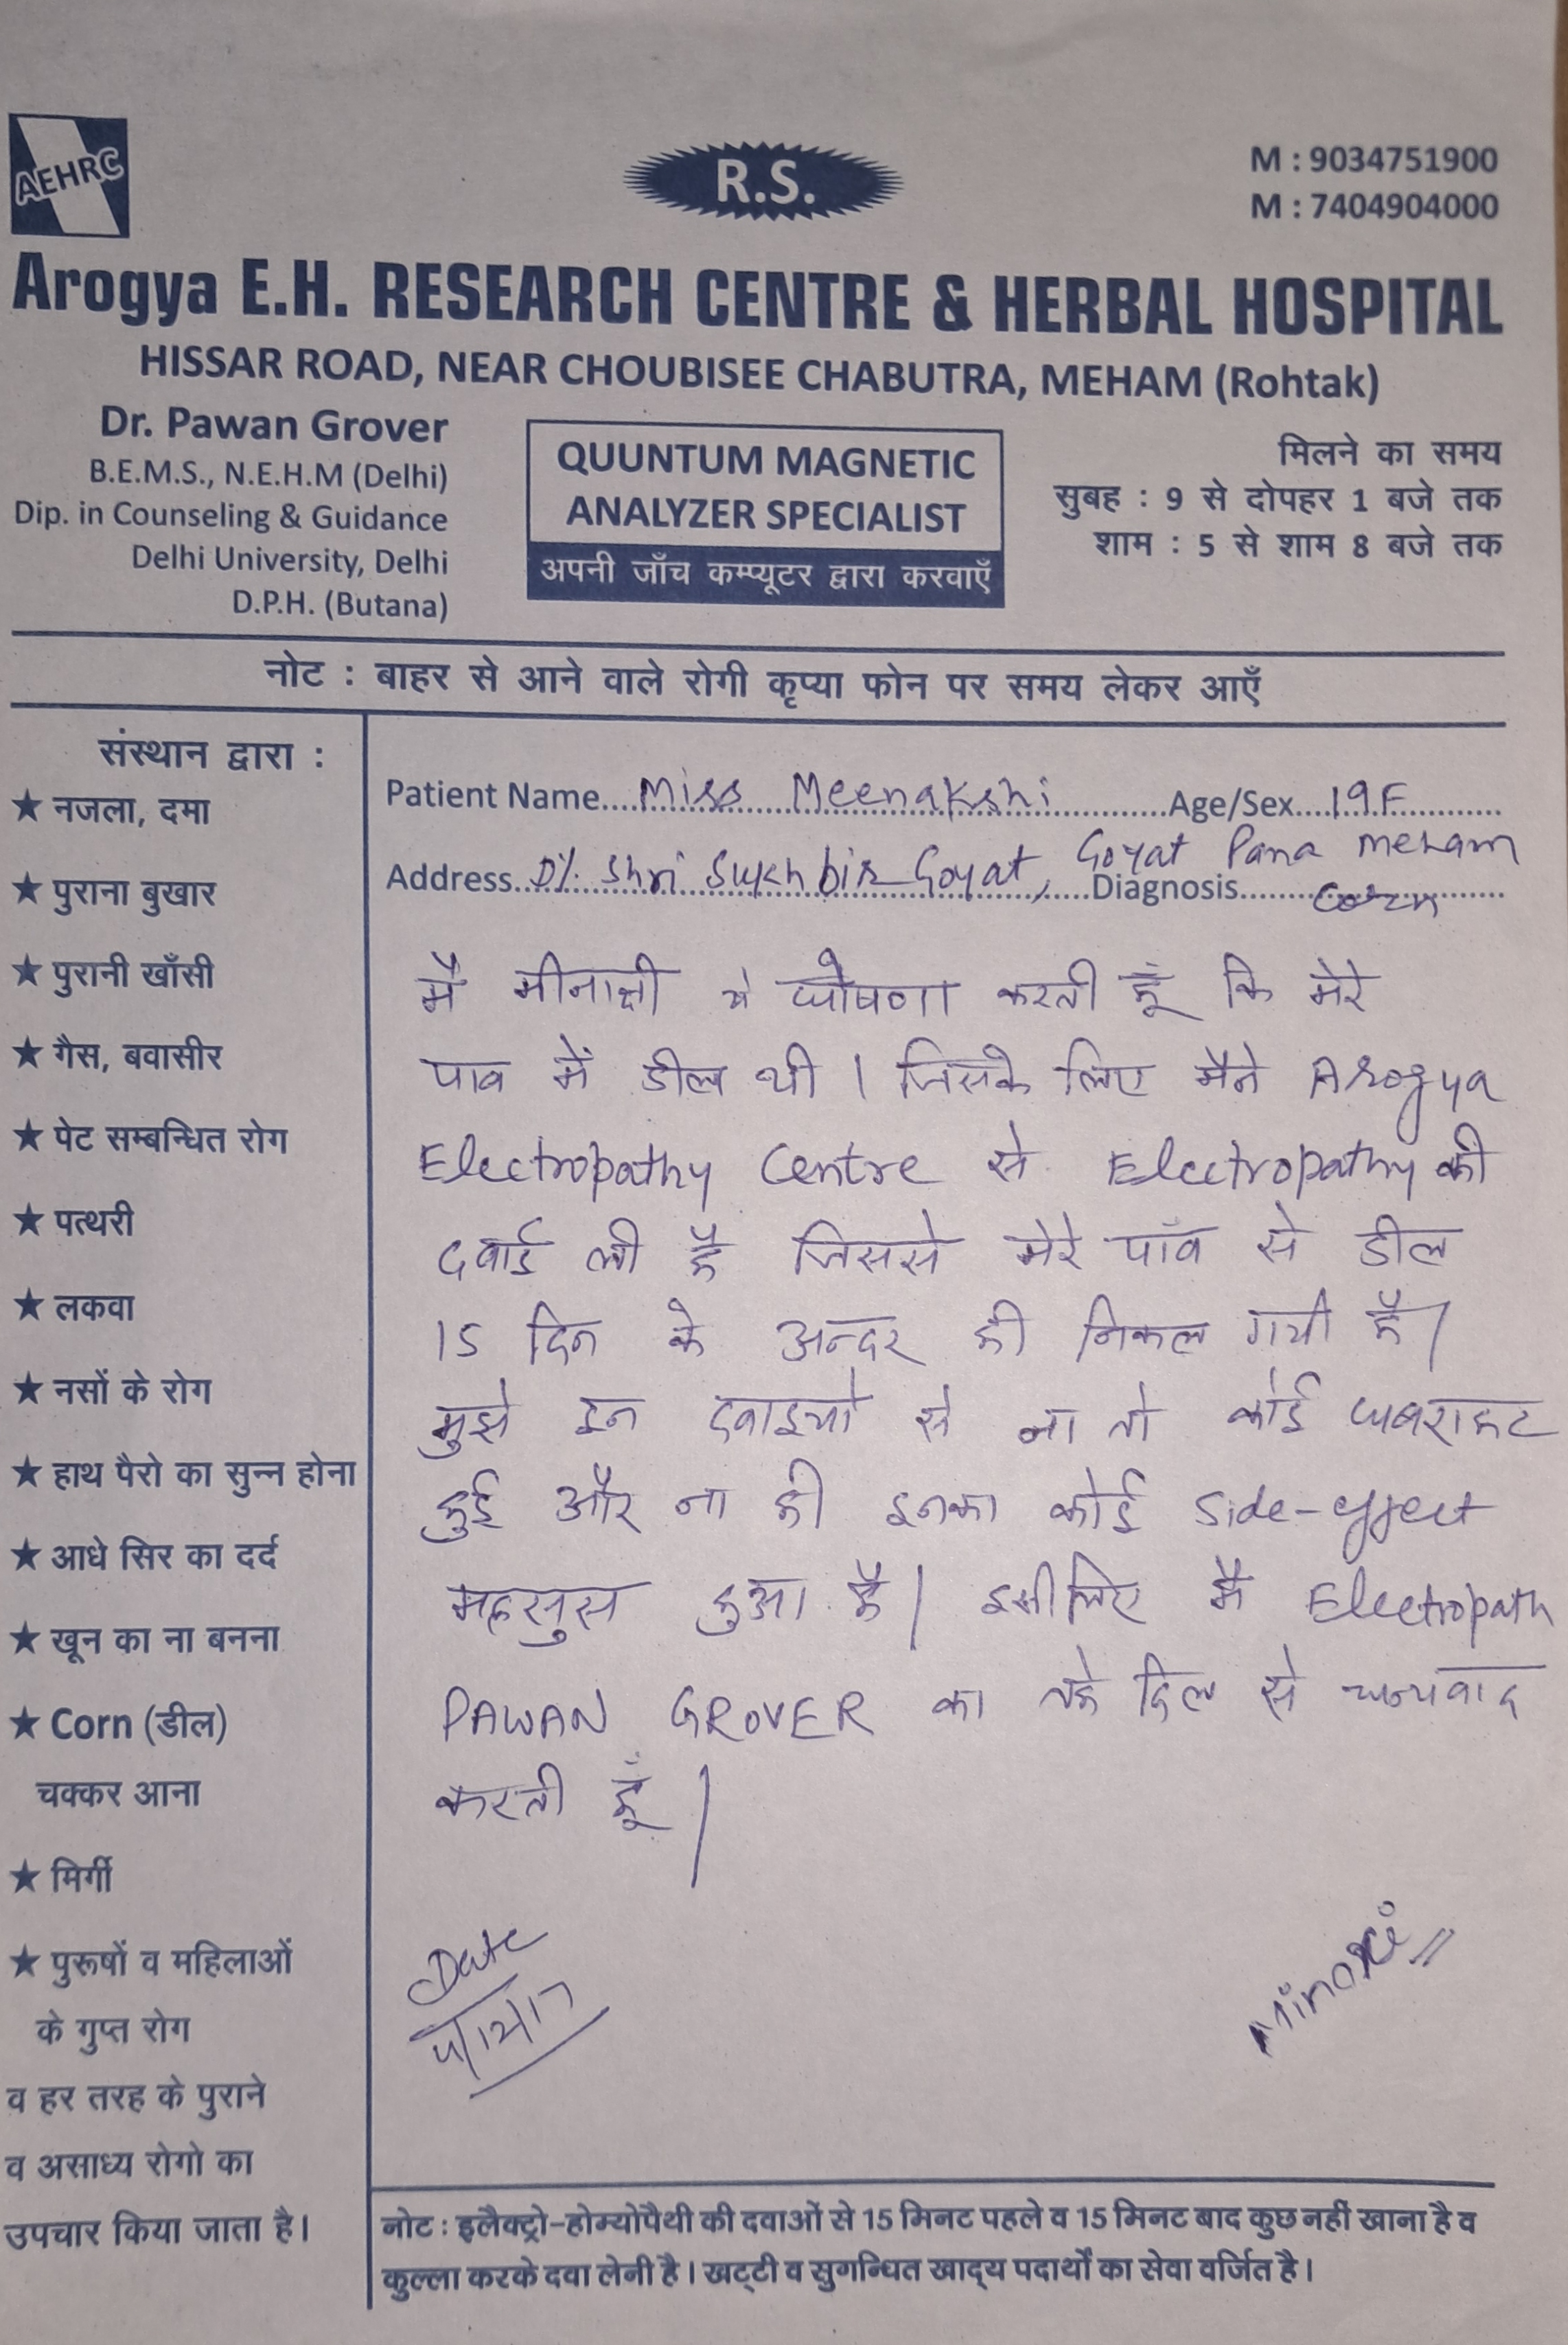 AEHRC
R.S.
M : 9034751900
M : 7404904000
Arogya E.H. RESEARCH CENTRE & HERBAL HOSPITAL
HISSAR ROAD, NEAR CHOUBISEE CHABUTRA, MEHAM (Rohtak)
Dr. Pawan Grover
B.E.M.S., N.E.H.M (Delhi)
Dip. in Counseling & Guidance
Delhi University, Delhi
D.P.H. (Butana)
QUUNTUM MAGNETIC
ANALYZER SPECIALIST
अपनी जाँच कम्प्यूटर द्वारा करवाएँ
मिलने का समय
सुबह : 9 से दोपहर 1 बजे तक
शाम : 5 से शाम 8 बजे तक
नोट : बाहर से आने वाले रोगी कृप्या फोन पर समय लेकर आएँ
संस्थान द्वारा :
★ नजला, दमा
★ पुराना बुखार
★ पुरानी खाँसी
★ गैस, बवासीर
★ पेट सम्बन्धित रोग
★ पत्थरी
★ लकवा
★ नसों के रोग
★ हाथ पैरो का सुन्न होना
★ आधे सिर का दर्द
★ खून का ना बनना
★ Corn (डील)
चक्कर आना
★ मिर्गी
★ पुरूषों व महिलाओं
के गुप्त रोग
व हर तरह के पुराने
व असाध्य रोगो का
उपचार किया जाता है।
Patient Name....Miss Meenakshi....Age/Sex....19F....
Address..D/. Shri Sukhbir Goyat, Goyat Pana Meham
Diagnosis....Corn
मै मीनाक्षी ये घोषणा करती हूँ कि मेरे
पाव में डील थी। जिसके लिए मैने Arogya
Electropathy Centre से Electropathy की
दवाई ली है जिससे मेरे पाँव से डील
15 दिन के अन्दर ही निकल गयी है।
मुझे इन दवाइयो से ना तो कोई घबराहट
हुई और ना ही इनका कोई side-effect
महसुस हुआ है। इसीलिए मै Electropath
PAWAN GROVER का तहे दिल से धन्यवाद
करती हूँ।
Date
4/12/17
Minaxi
नोट : इलैक्ट्रो-होम्योपैथी की दवाओं से 15 मिनट पहले व 15 मिनट बाद कुछ नहीं खाना है व
कुल्ला करके दवा लेनी है। खट्टी व सुगन्धित खाद्य पदार्थों का सेवा वर्जित है।